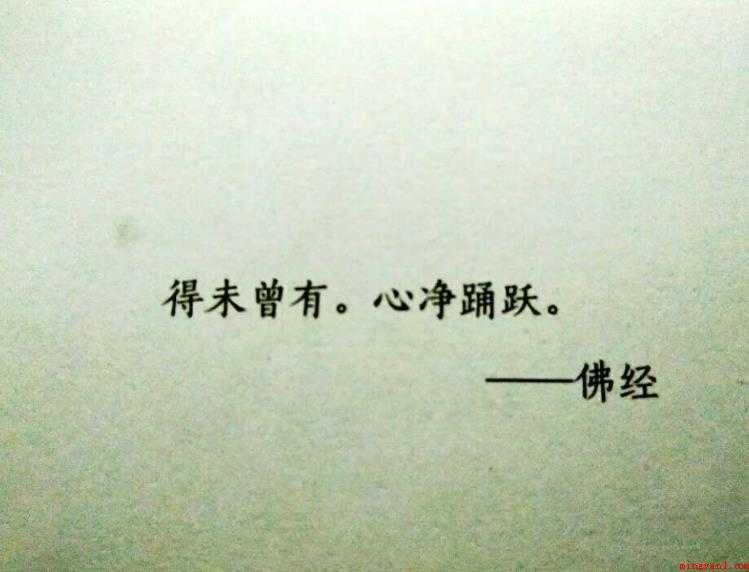 得未曾有。心净踊跃。
——佛经